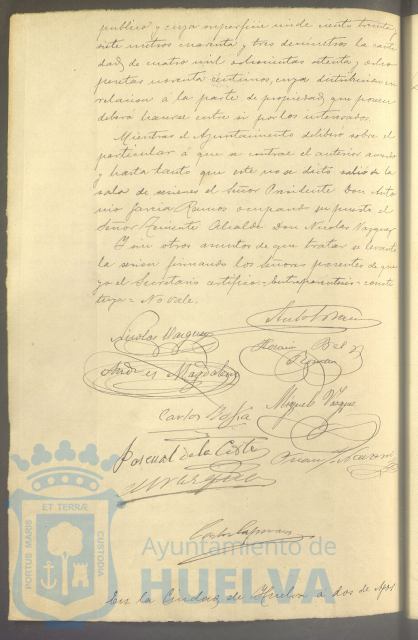 publico y cuya superficie mide ciento treinta
siete metros cuarenta y tres decimetros la canti
dad de cuatro mil ochocientas setenta y ocho
pesetas noventa centimos, cuya distribucion en
relacion á la parte de propiedad que poseen
deberá hacerse entre si por los interesados.
Mientras el Ayuntamiento delibero sobre el
particular á que se contrae el anterior
y hasta tanto que este no se dictó salio de la
sala de sesiones el Señor Presidente Don Anto
nio Garcia Ramos ocupando su puesto el
Señor Teniente Alcalde Don Nicolas Vazquez
Y sin otros asuntos de que tratar se levantó
la sesion firmando los Señores presentes de que
yo el Secretario certifico = Entreparentesis =
= No vale.
Nicolas Vazquez
Horacio Bel
Roman
Andres Magdalena
Carlos
Miguel Vazquez
Pascual de la Corte
Juan
ET TERRÆ
PORTUS MARIS
CUSTODIA
Ayuntamiento de
HUELVA
En la Ciudad de Huelva a dos de Agos